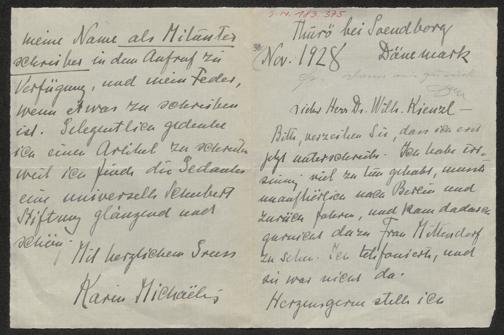 I.N. 183.375
Thurö bei Svendborg
Nov. 1928 Dänemark
Lieber Herr Dr. Wilh. Kienzl –
Bitte, verzeihen Sie, dass ich erst
jetzt unterschreibe. Ich habe irr-
sinnig viel zu tun gehabt, musste
unaufhörlich nach Berlin und
zurück fahren, und kam dadurch
garnicht dazu Frau
zu sehn. Ich telefonierte, und
sie war nicht da.
Herzensgerne stelle ich
meine Name als Mitunter
schreiber in dem Aufruf zu
Verfügung, und meine Feder,
wenn etwas zu schreiben
ist. Gelegentlich gedenke
ich einen Artikel zu schreiben
weil ich finde die Gedanke
eine universelle Schubert
Stiftung glänzend und
schön.
Mit herzlichem Gruss
Karin Michaëlis